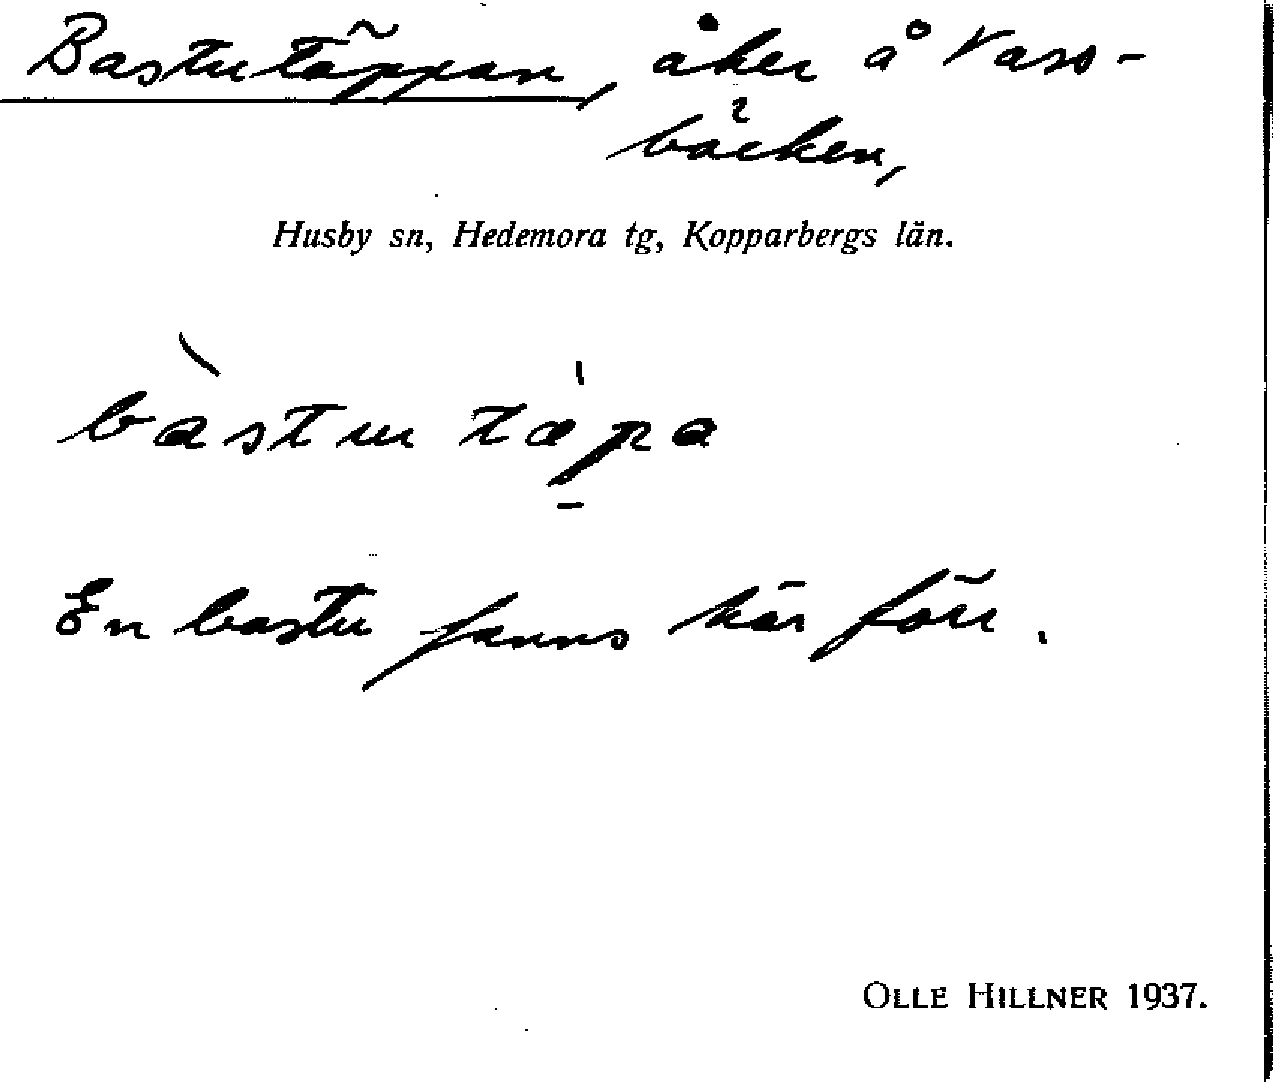 Bastutäppan, åker å Vass-
bäcken,
Husby sn, Hedemora tg, Kopparbergs län.
bàstu tæ̍pa
En bastu fanns här förr.
OLLE HILLNER 1937.